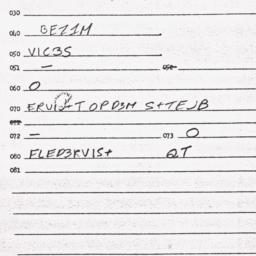 030
040 BEZ1M
050 VIC3S
051 — 052
060 O
070 ERVI TOPD3M S+TEJB
072 — 073 O
080 FLED3RVIS+ QT
081